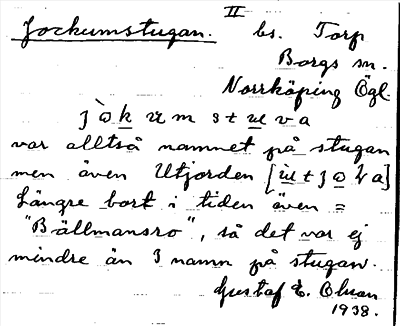 II
Jockumstugan. bs. Torp
Borgs sn.
Norrköping Ögl.
var alltså namnet på stugan
men även Utjorden
Längre bort i tiden även =
"Bällmansro", så det var ej
mindre än 3 namn på stugan.
Gustaf E. Olson
1938.